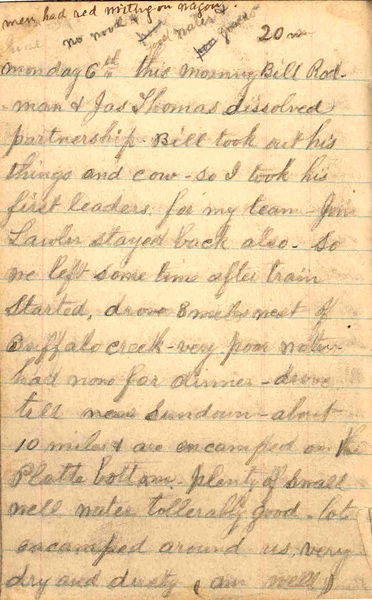 men had red writing on wagons
no wood & good water
poor grass 20 m
June
Monday 6th this morning Bill Rod-
man & Jas Thomas dissolved
partnership. Bill took out his
things and cow - so I took his
first leaders for my team - Jim
Lawler stayed back also. So
we left some time after train
started, drove 8 miles west of
Buffalo creek - very poor water
had none for dinner - drove
till near sundown - about
10 miles & are encamped on the
Platte bottom - plenty of small
well water tollerably good - lots
encamped around us, very
dry and dusty (am well)